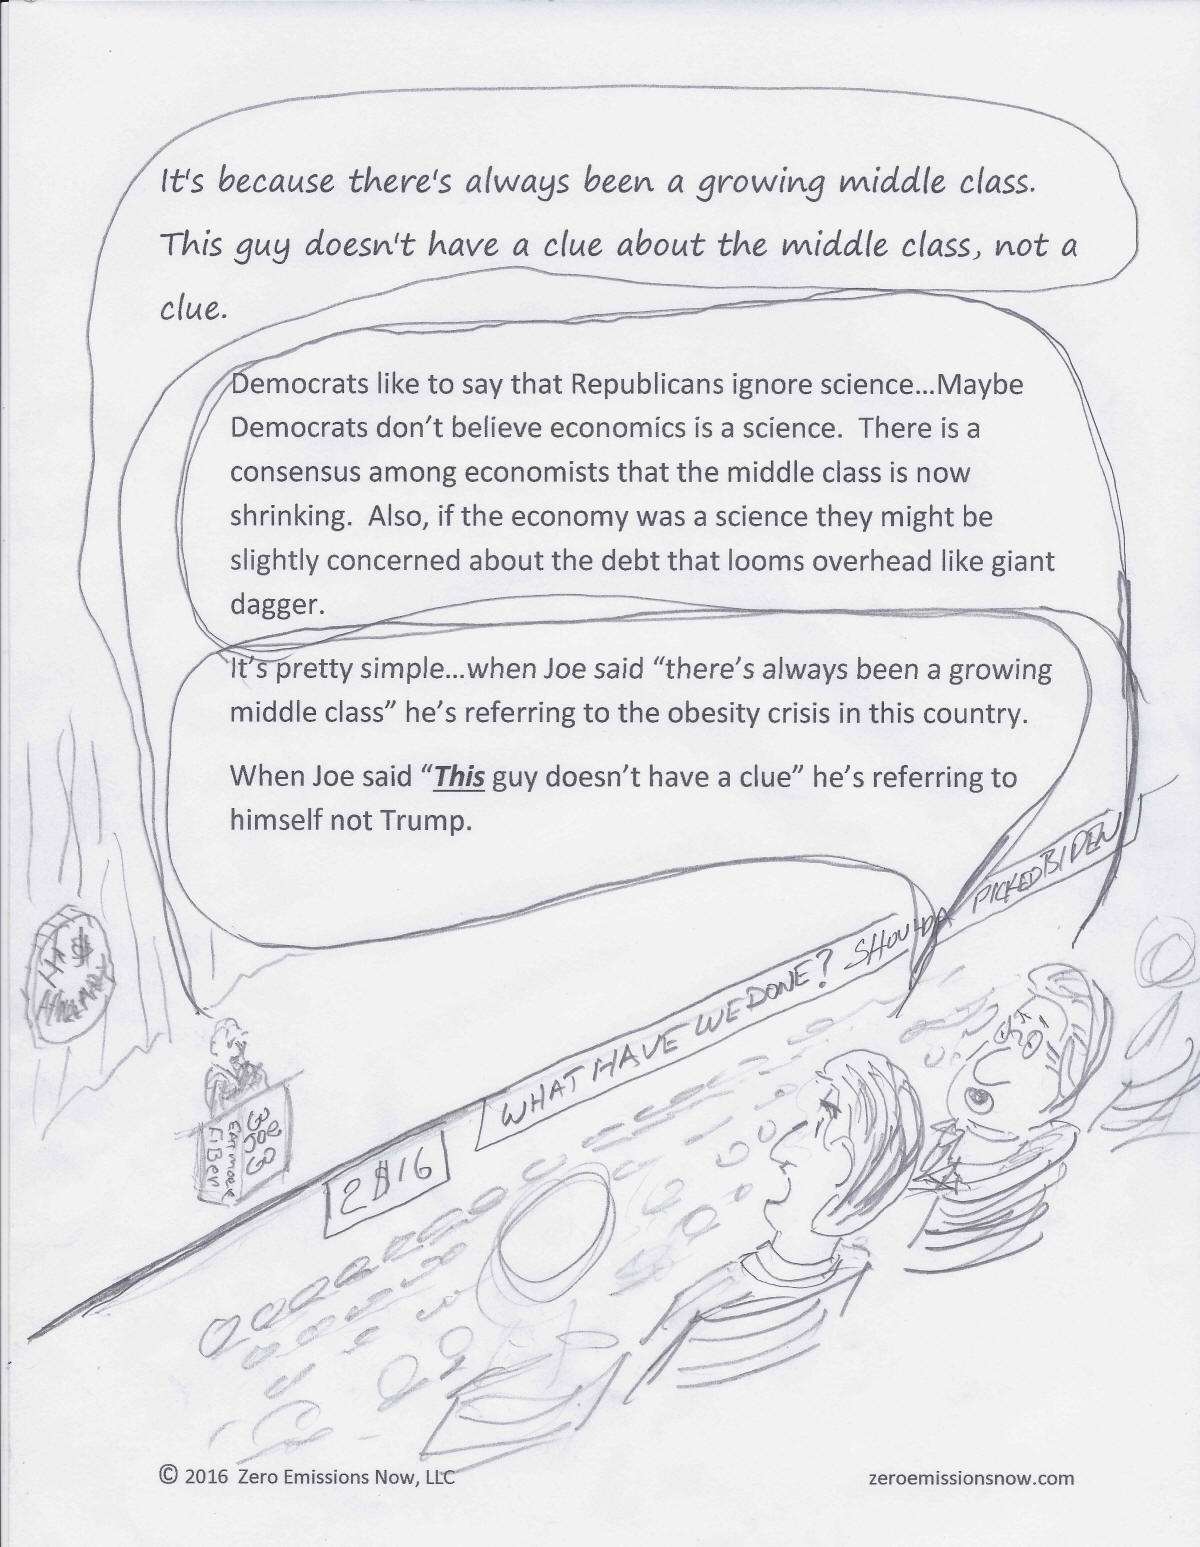 It's because there's always been a growing middle class.
This guy doesn't have a clue about the middle class, not a
clue.
Democrats like to say that Republicans ignore science...Maybe
Democrats don’t believe economics is a science.  There is a
consensus among economists that the middle class is now
shrinking.  Also, if the economy was a science they might be
slightly concerned about the debt that looms overhead like giant
dagger.
It’s pretty simple...when Joe said “there’s always been a growing
middle class” he’s referring to the obesity crisis in this country.
When Joe said “This guy doesn’t have a clue” he’s referring to
himself not Trump.
EAT MORE
FIBER
2$16
WHAT HAVE WE DONE? SHOULDA PICKED BIDEN
© 2016 Zero Emissions Now, LLC
zeroemissionsnow.com